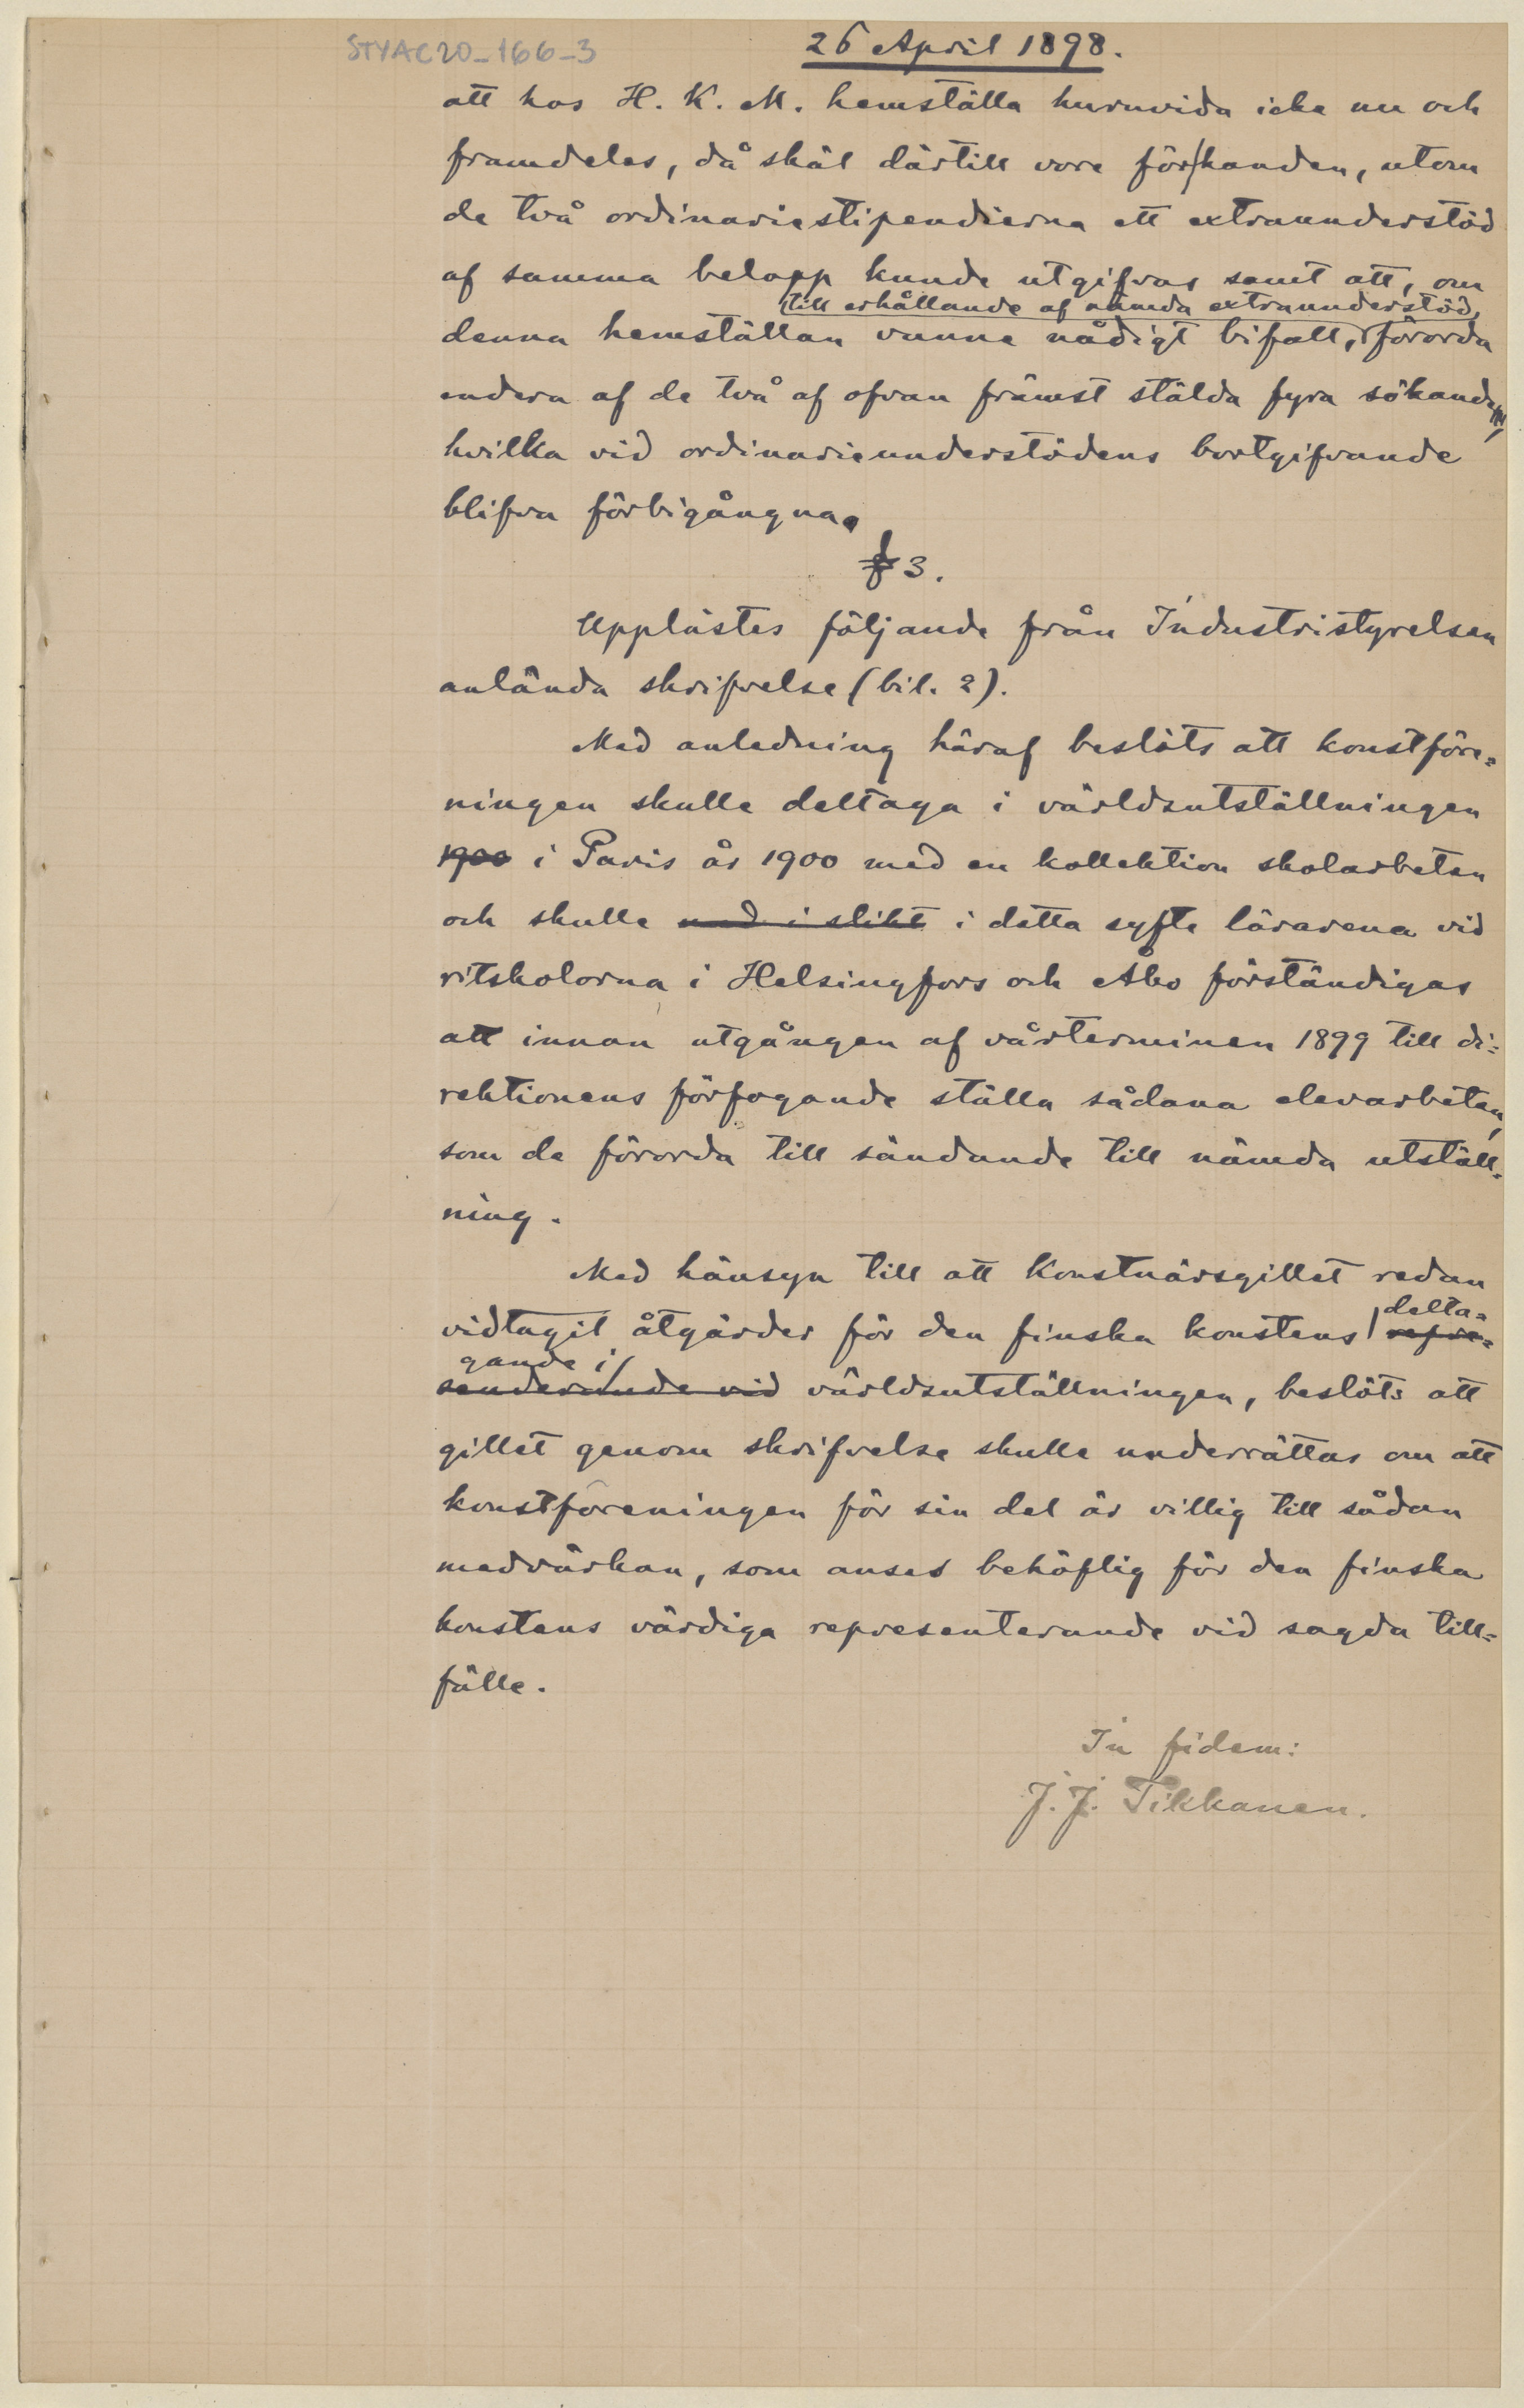 STYAC20_166_3
26 April 1898.
att hos H. K. M. hemställa huruvida icke nu och
framdeles, då skäl därtill vore förhanden, utom
de två ordinariestipendierna ett extraunderstöd
af samma belopp kunde utgifvas samt att, om
till erhållande af nämda extraunderstöd,
denna hemställan vunne nådigt bifall, förorda
endera af de två af ofvan främst stälda fyra sökanden,
hvilka vid ordinarieunderstödens bortgifvande
blifva förbigångna.
§ 3.
Upplästes följande från Industristyrelsen
anlända skrifvelse (bil. 2).
Med anledning häraf beslöts att konstföre=
ningen skulle deltaga i världsutställningen
1900 i Paris år 1900 med en kollektion skolarbeten
och skulle i detta syfte lärarena vid
ritskolorna i Helsingfors och Åbo förständigas
att innan utgången af vårterminen 1899 till di=
rektionens förfogande ställa sådana elevarbeten,
som de förorda till sändande till nämda utställ=
ning.
Med hänsyn till att Konstnärsgillet redan
delta=
vidtagit åtgärder för den finska konstens repre=
gande i
senderande vid världsutställningen, beslöts att
gillet genom skrifvelse skulle underrättas om att
konstföreningen för sin del är villig till sådan
medvärkan, som anses behöflig för den finska
konstens värdiga representerande vid sagda till=
fälle.
In fidem:
J. J. Tikkanen.